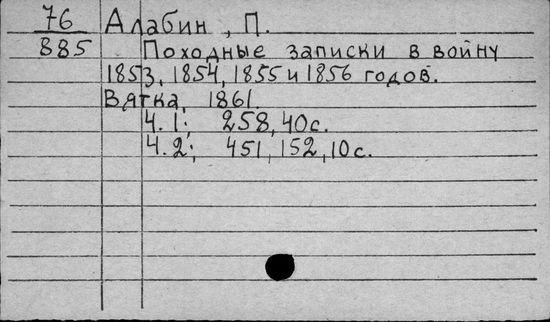 76 Алабин, П.
885 Походные записки в войну
1853, 1854, 1855 и 1856 годов.
Вятка, 1861.
Ч. 1; 258, 40 с.
Ч. 2; 451, 152, 10 с.